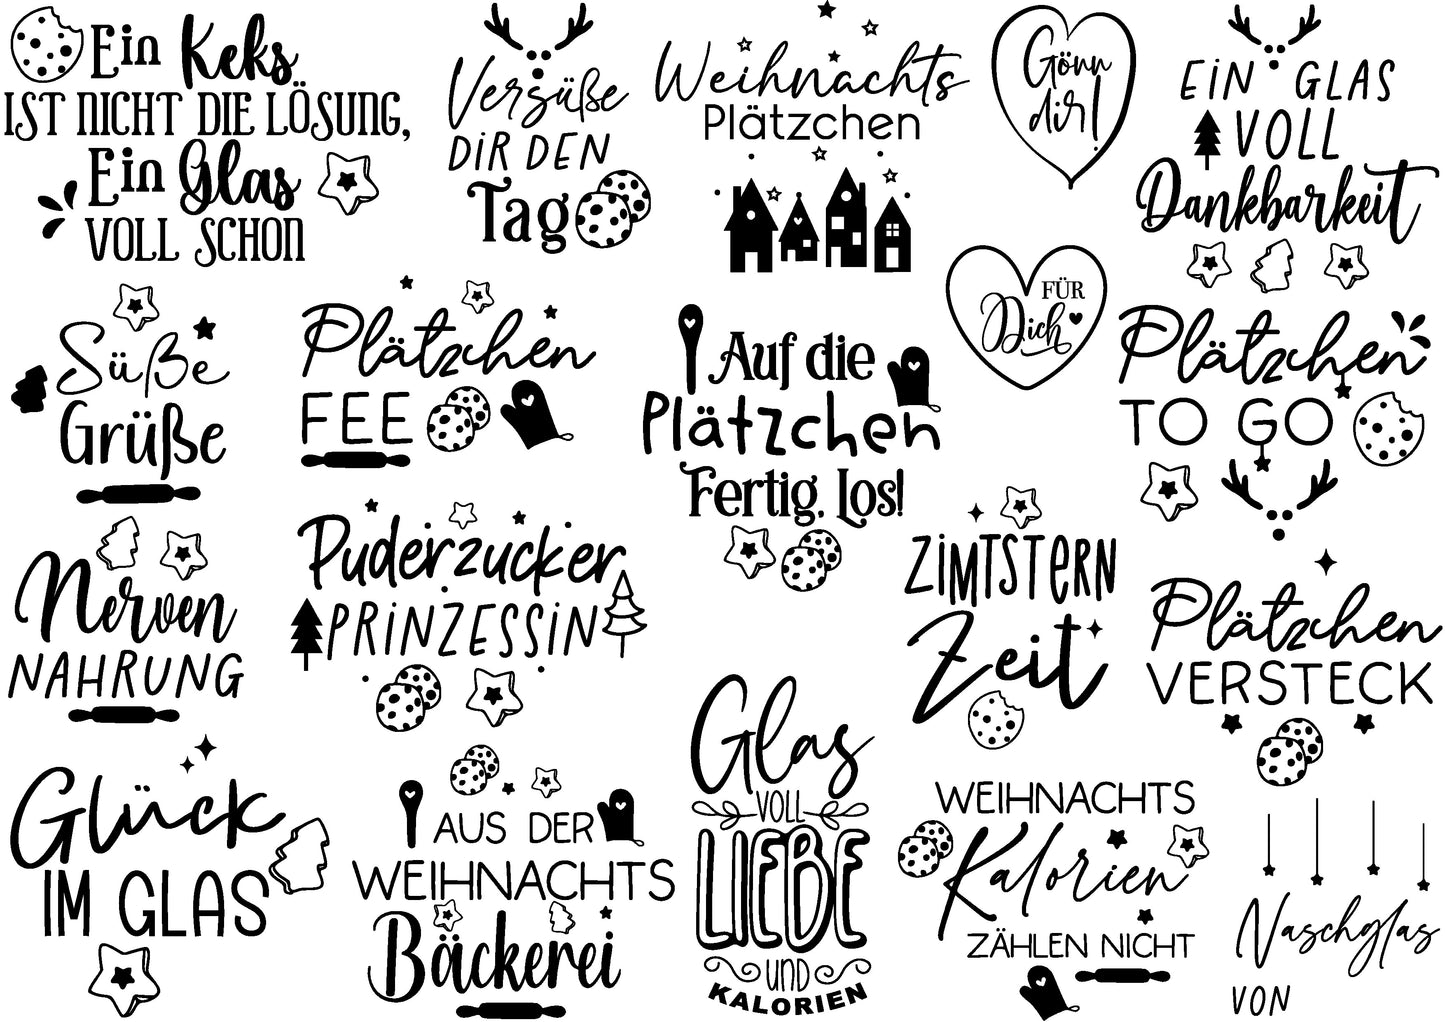 Ein Keks
IST NICHT DIE LÖSUNG,
Ein Glas
VOLL SCHON
Versüße
DIR DEN
Tag
Weihnachts
Plätzchen
Gönn
dir!
EIN GLAS
VOLL
Dankbarkeit
FÜR
Dich
Süße
Grüße
Plätzchen
FEE
Auf die
Plätzchen
Fertig, Los!
Plätzchen
TO GO
Nerven
NAHRUNG
Puderzucker
PRINZESSIN
ZIMTSTERN
Zeit
Plätzchen
VERSTECK
Glück
IM GLAS
AUS DER
WEIHNACHTS
Bäckerei
Glas
VOLL
LIEBE
UND
KALORIEN
WEIHNACHTS
Kalorien
ZÄHLEN NICHT
Naschglas
VON